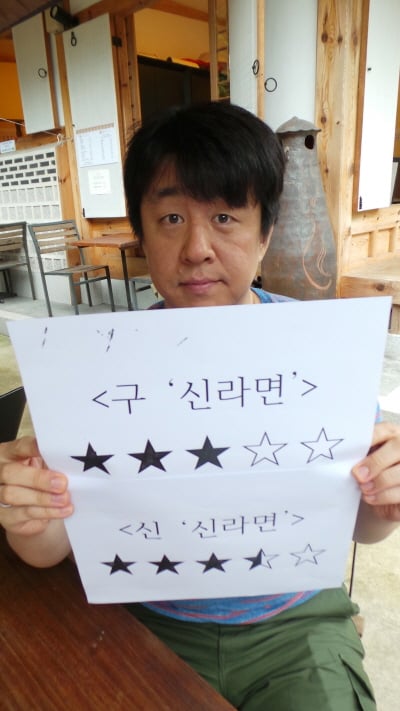 <구 '신라면'>
★★★☆☆
<신 '신라면'>
★★★⯪☆